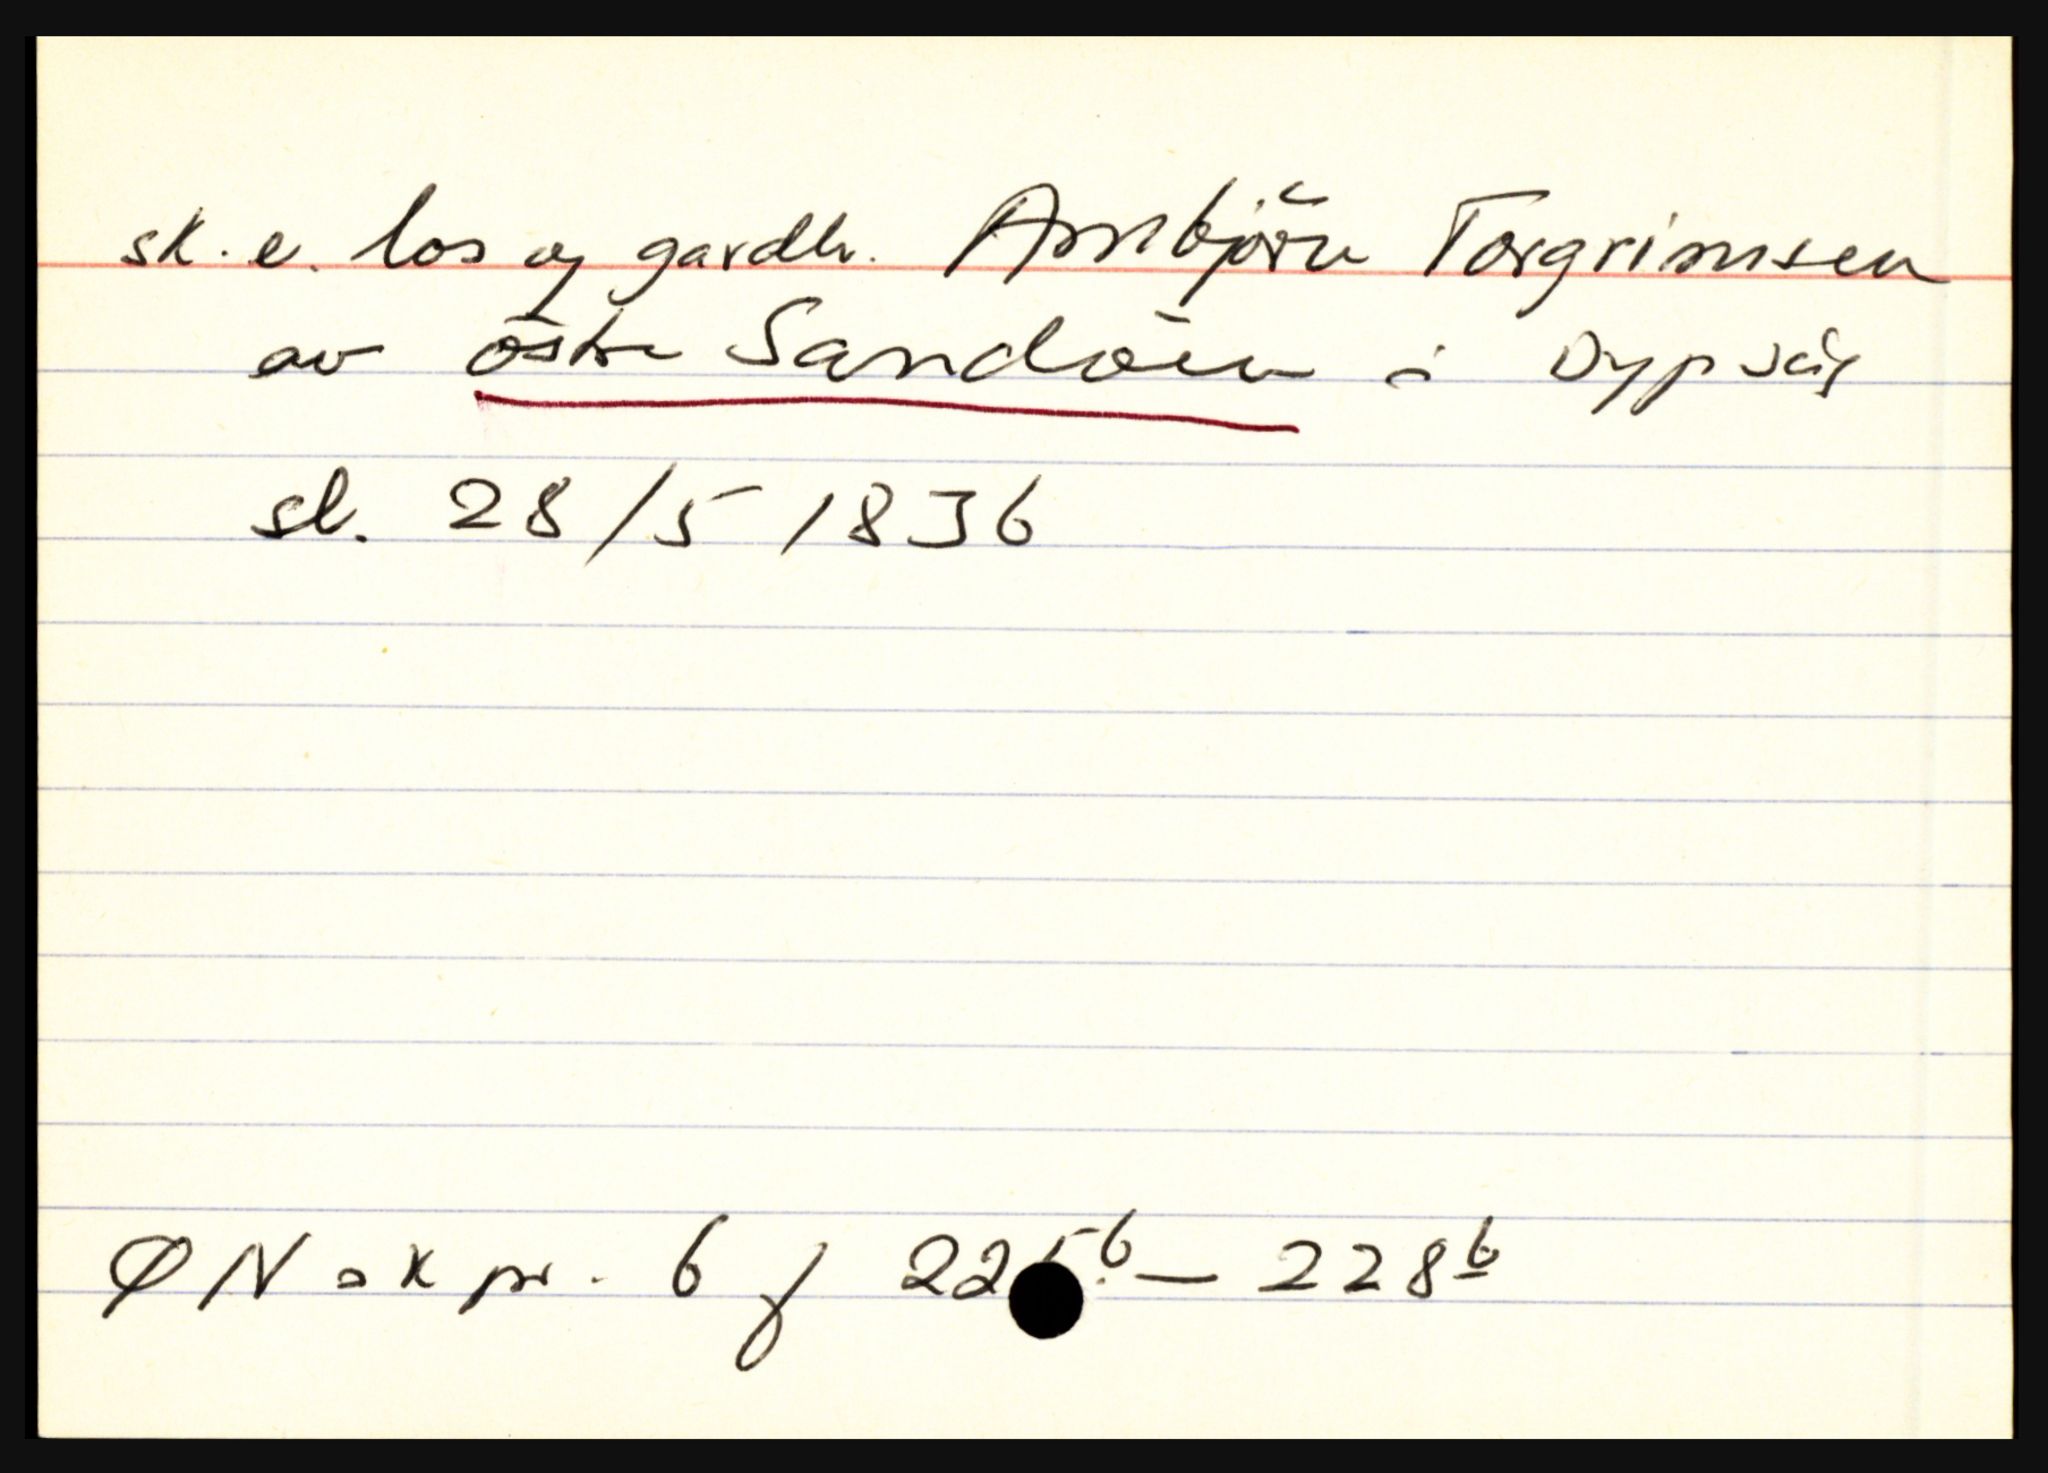 sk. e. los og gardbr. Arnbjörn Torgrimsen
av östre Sandöen i Dypvåg
sl. 28/5 1836
ØN skpr. 6 f 225b — 228b